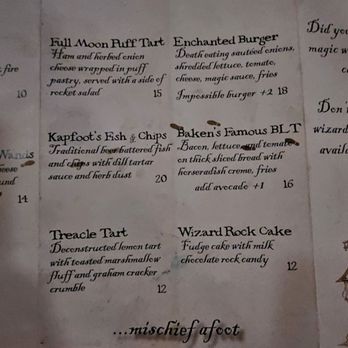 fire
10
Wands
heese
und
14
Full Moon Puff Tart
Ham and herbed onion
cheese wrapped in puff
pastry, served with a side of
rocket salad 15
Kapfoot's Fish & Chips
Traditional beer battered fish
and chips with dill tartar
sauce and herb dust
20
Treacle Tart
Deconstructed lemon tart
with toasted marshmallow
fluff and graham cracker
crumble 12
Enchanted Burger
Death eating sautéed onions,
shredded lettuce, tomato,
cheese, magic sauce, fries
Impossible burger +2 18
Baken's Famous BLT
Bacon, lettuce, and tomato
on thick sliced bread with
horseradish creme, fries
add avocado +1 16
Wizard Rock Cake
Fudge cake with milk
chocolate rock candy
12
Did yo
magic w
c
Don'
wizard
availa
...mischief afoot